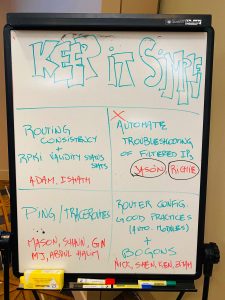 KEEP it SIMPLE
ROUTING
CONSISTENCY
+
RPKI VALIDITY STATUS
STATS
ADAM,
X AUTOMATE
TROUBLESHOOTING
OF FILTERED IP
JASON RICHIE
PING / TRACEROUTES
MASON, GM
MJ, ABDUL HALIM
ROUTER CONFIG.
GOOD PRACTICES
+
BOGONS
NICK, SHEN, KEN,